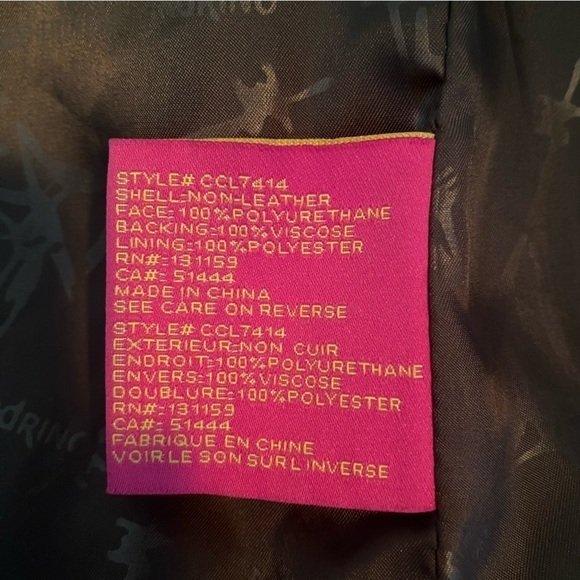 DRINO
STYLE# CCL7414
SHELL:NON-LEATHER
FACE:100%POLYURETHANE
BACKING:100%VISCOSE
LINING:100%POLYESTER
RN#:131159
CA#: 51444
MADE IN CHINA
SEE CARE ON REVERSE
STYLE# CCL7414
EXTERIEUR:NON CUIR
ENDROIT:100%POLYURETHANE
ENVERS:100%VISCOSE
DOUBLURE:100%POLYESTER
RN#:131159
CA#: 51444
FABRIQUE EN CHINE
VOIR LE SON SUR L INVERSE
DRINO